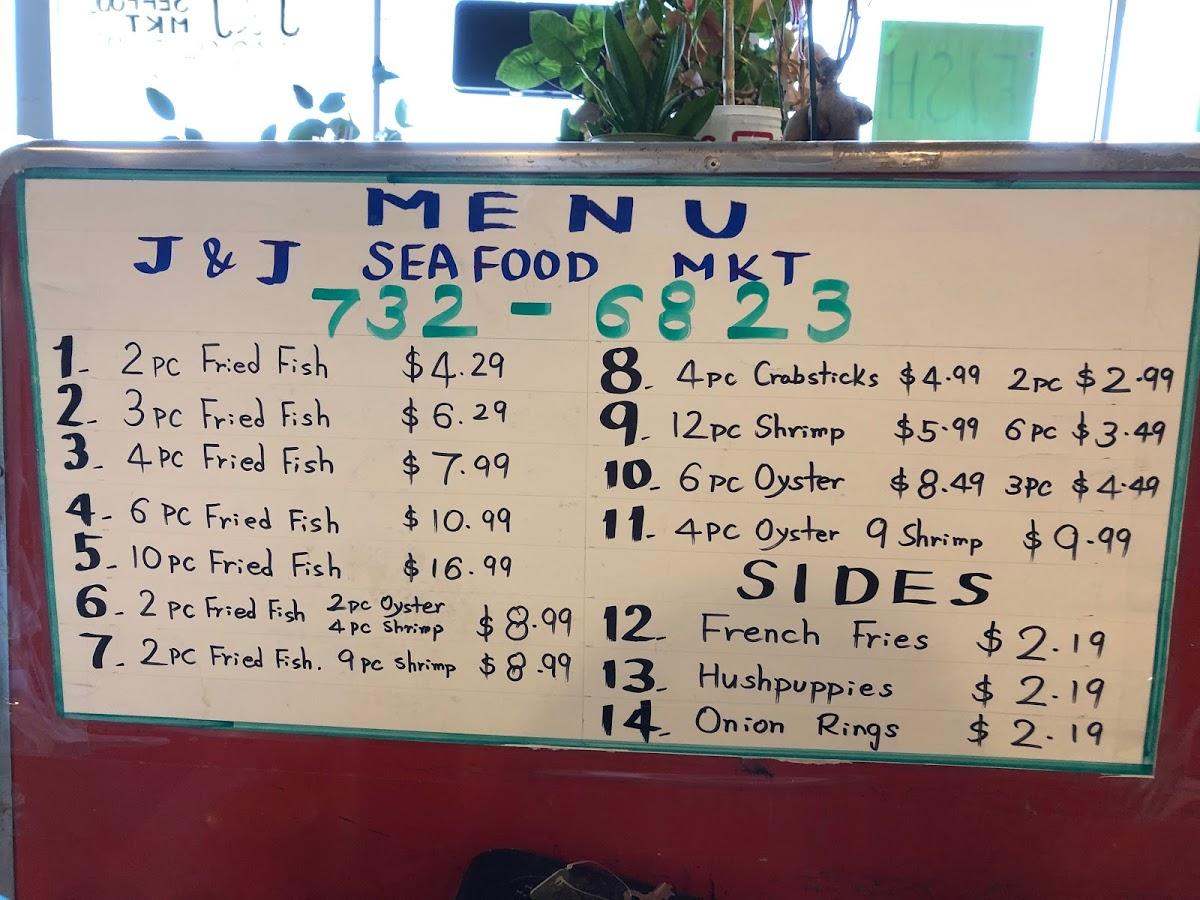 SEAFOOD J&J
MKT
FISH
MENU
J & J SEAFOOD MKT
732-6823
1- 2 PC Fried Fish $4.29
2- 3 PC Fried Fish $6.29
3- 4 PC Fried Fish $7.99
4- 6 PC Fried Fish $10.99
5- 10 PC Fried Fish $16.99
6- 2 PC Fried Fish 2PC Oyster
4 PC Shrimp $8.99
7- 2PC Fried Fish. 9 PC Shrimp $8.99
8- 4PC Crabsticks $4.99 2PC $2.99
9- 12PC Shrimp $5.99 6 PC $3.49
10- 6 PC Oyster $8.49 3PC $4.49
11- 4PC Oyster 9 Shrimp $9.99
SIDES
12- French Fries $2.19
13- Hushpuppies $2.19
14- Onion Rings $2.19